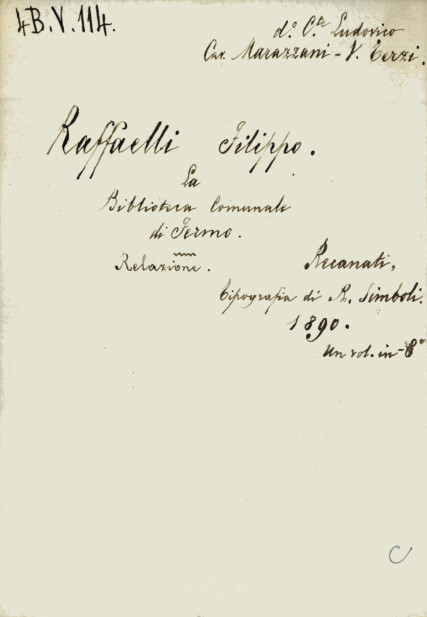 4B.V.114.
d.º C.te Ludovico
Cav. Marazzani - V. Terzi.
Raffaelli Filippo.
La
Biblioteca Comunale
di Fermo.
Relazione.
Recanati,
Tipografia di R. Simboli.
1890.
Un vol. in-8º
C